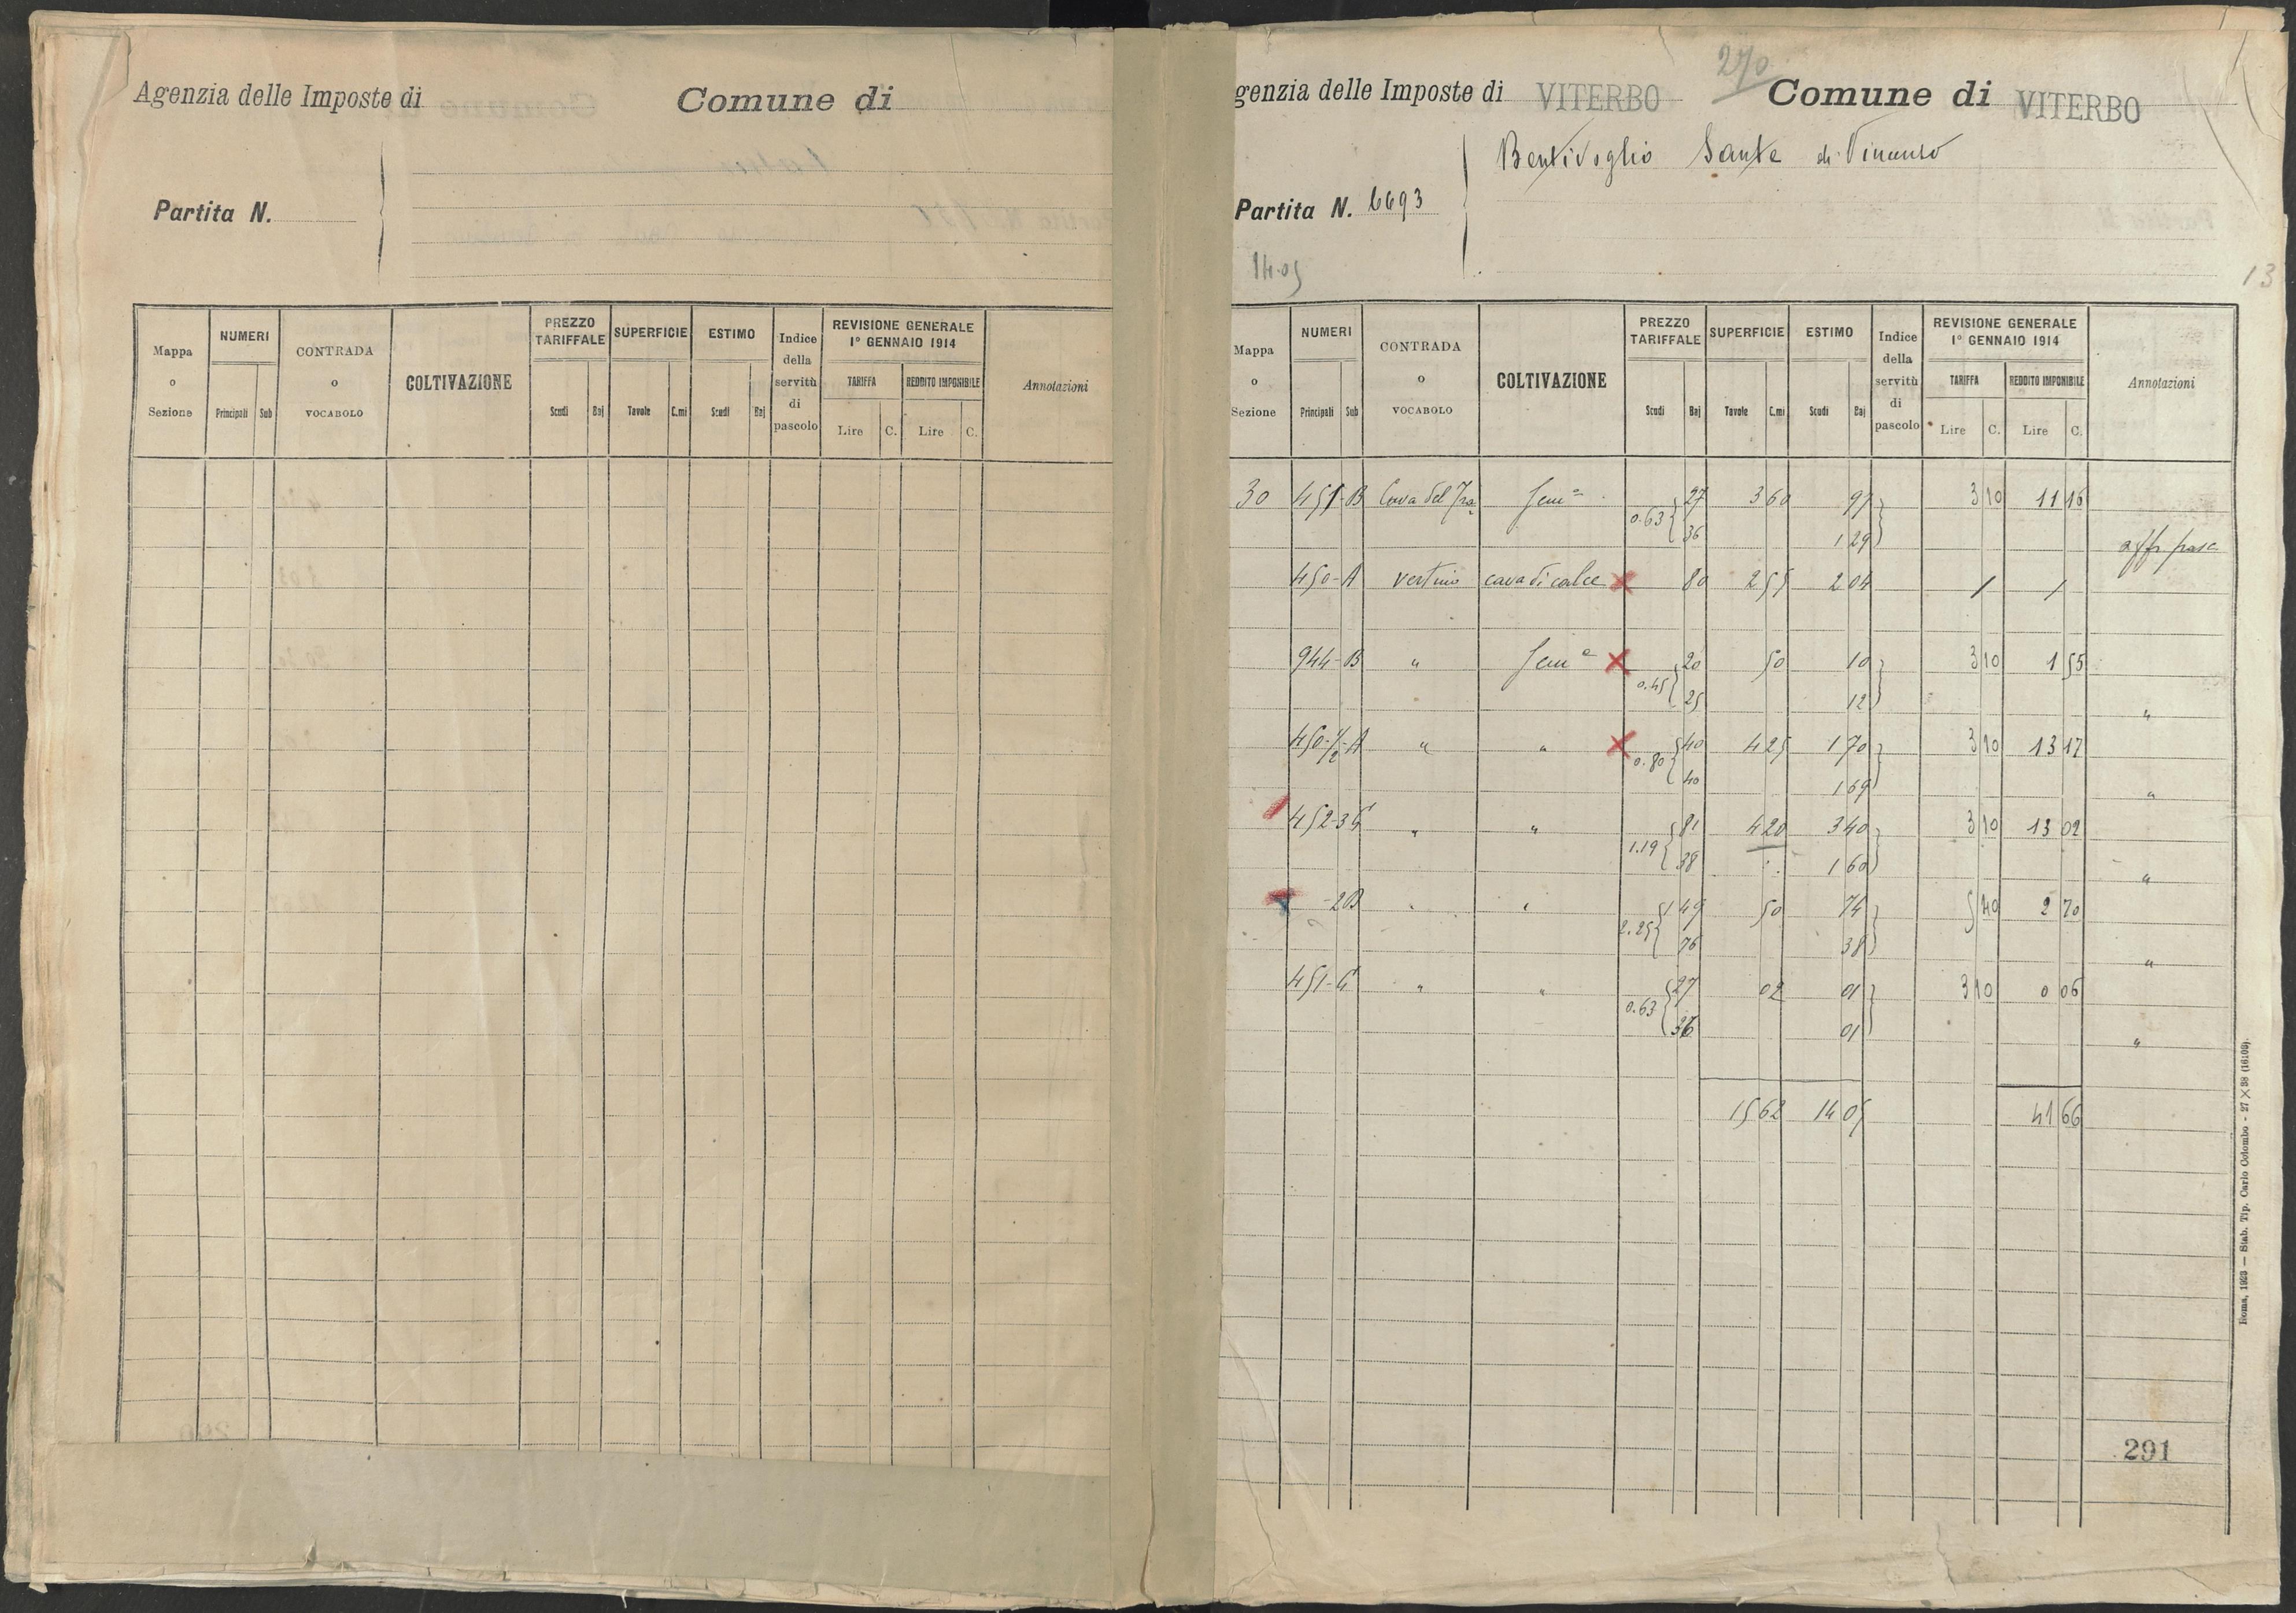 Agenzia delle Imposte di
Comune di
Partita N.
Mappa o Sezione
NUMERI
Principali Sub
CONTRADA o VOCABOLO
COLTIVAZIONE
PREZZO TARIFFALE
Scudi Baj
SUPERFICIE
Tavole C.mi
ESTIMO
Scudi Baj
Indice della servitù di pascolo
REVISIONE GENERALE
1º GENNAIO 1914
TARIFFA REDDITO IMPONIBILE
Lire C. Lire C.
Annotazioni
270
genzia delle Imposte di VITERBO Comune di VITERBO
Bentivoglio Sante di Vincenzo
Partita N. 6693
14.05
13
Mappa o Sezione
NUMERI
Principali Sub
CONTRADA o VOCABOLO
COLTIVAZIONE
PREZZO TARIFFALE
Scudi Baj
SUPERFICIE
Tavole C.mi
ESTIMO
Scudi Baj
Indice della servitù di pascolo
REVISIONE GENERALE
1º GENNAIO 1914
TARIFFA REDDITO IMPONIBILE
Lire C. Lire C.
Annotazioni
30 451-B Cava del Sem.ª 27 3 60 97 3 10 11 16
0.63 36 1 29 affr. pasc
450-A cava di calce 80 2 55 2 04 / /
944-B " Sem.ª 20 50 10 3 10 1 55
0.45 25 12 "
450-1/2-A " " 40 4 25 1 70 3 10 13 17
0.80 40 1 69 "
452-3 " " 81 4 20 3 40 3 10 13 02
1.19 38 1 60 "
-2B " " 1 49 50 74 5 40 2 70
2.25 76 38 "
451-C " " 27 02 01 3 10 0 06
0.63 36 01 "
15 62 14 05 41 66
291
Roma, 1923 — Stab. Tip. Carlo Colombo - 27 × 38 (16108).